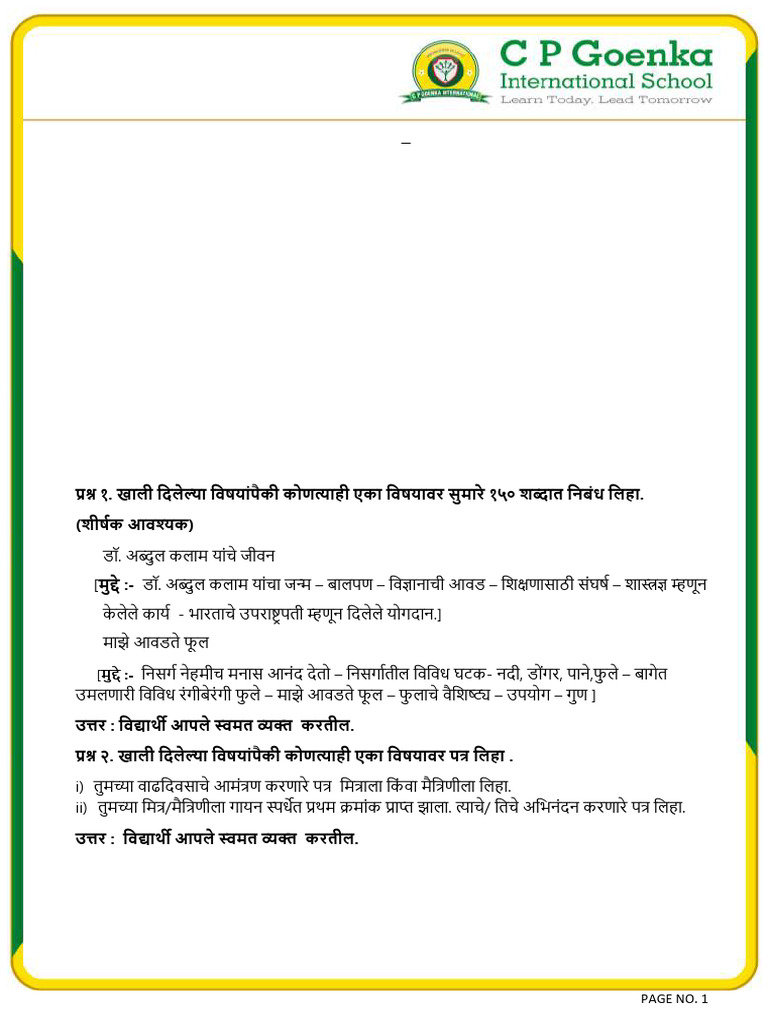 C P Goenka
International School
Learn Today, Lead Tomorrow
C P GOENKA INTERNATIONAL
–
प्रश्न १. खाली दिलेल्या विषयांपैकी कोणत्याही एका विषयावर सुमारे १५० शब्दात निबंध लिहा.
(शीर्षक आवश्यक)
डॉ. अब्दुल कलाम यांचे जीवन
[मुद्दे :- डॉ. अब्दुल कलाम यांचा जन्म – बालपण – विज्ञानाची आवड – शिक्षणासाठी संघर्ष – शास्त्रज्ञ म्हणून
केलेले कार्य - भारताचे उपराष्ट्रपती म्हणून दिलेले योगदान.]
माझे आवडते फूल
[मुद्दे :- निसर्ग नेहमीच मनास आनंद देतो – निसर्गातील विविध घटक- नदी, डोंगर, पाने,फुले – बागेत
उमलणारी विविध रंगीबेरंगी फुले – माझे आवडते फूल – फुलाचे वैशिष्ट्य – उपयोग – गुण ]
उत्तर : विद्यार्थी आपले स्वमत व्यक्त करतील.
प्रश्न २. खाली दिलेल्या विषयांपैकी कोणत्याही एका विषयावर पत्र लिहा .
i) तुमच्या वाढदिवसाचे आमंत्रण करणारे पत्र मित्राला किंवा मैत्रिणीला लिहा.
ii) तुमच्या मित्र/मैत्रिणीला गायन स्पर्धेत प्रथम क्रमांक प्राप्त झाला. त्याचे/ तिचे अभिनंदन करणारे पत्र लिहा.
उत्तर : विद्यार्थी आपले स्वमत व्यक्त करतील.
PAGE NO. 1